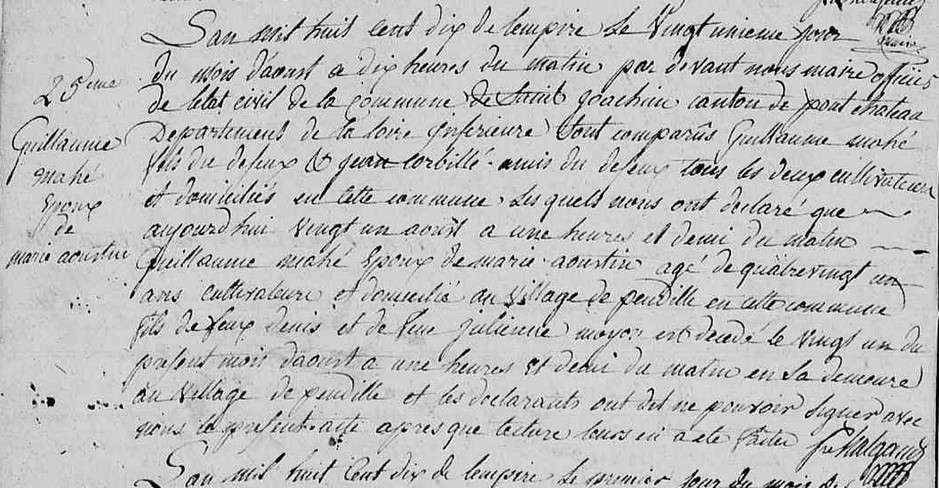 Lan mil huit cent dix de lempire le vingt unieme jour
maire
du mois daoust a dix heures du matin par devant nous maire officier
25eme
de letat civil de la commune de Saint Joachim canton de pont chateau
Guillaume
mahé
Epoux
de
marie aoustin
Departement de la loire Inferieure Sont comparûs Guillaume mahé
fils du defeux & jean corbillé amis du defeux tous les deux cultivateurs
et domiciliés en cette commune Les quels nous ont déclaré que
aujourdhui vingt un aoust a une heures et demi du matin
Guillaume mahé Epoux de marie aoustin agé de quatrevingt un
ans cultivateure et domicilié au village de pendille en cette commune
fils de feux denis et de feue julienne moyon est decedé le vingt un du
présent mois daoust a une heures et demi du matin en sa demeure
au village de pendille et les declarants ont dit ne pouvoir signer avec
nous le présent acte apres que lecture leurs en a eté faitte
Lan mil huit cent dix de lempire le premier jour du mois de